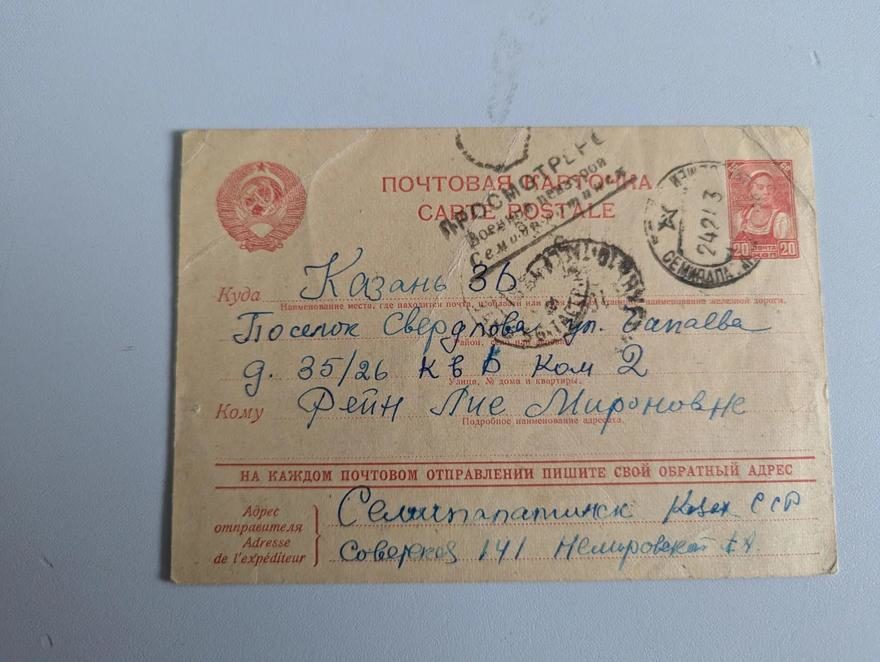 ПОЧТОВАЯ КАРТОЧКА
CARTE POSTALE
ПРОСМОТРЕНО
Военной Цензурой
Семипалатинск
20 ПОЧТА 20
КОП.
24 2 43
СЕМИПАЛА
Куда Казань 36
Наименование места, где находится почта, наименование железной дороги.
Поселок Свердлова ул. Чапаева
Район, село
д. 35/26 кв 6 Ком 2
Улица, № дома и квартиры.
Кому Рейн Лие Мироновне
Подробное наименование адресата.
НА КАЖДОМ ПОЧТОВОМ ОТПРАВЛЕНИИ ПИШИТЕ СВОЙ ОБРАТНЫЙ АДРЕС
Адрес
отправителя
Adresse
de l'expéditeur
Семипалатинск Казах ССР
Советская 141 Немировской